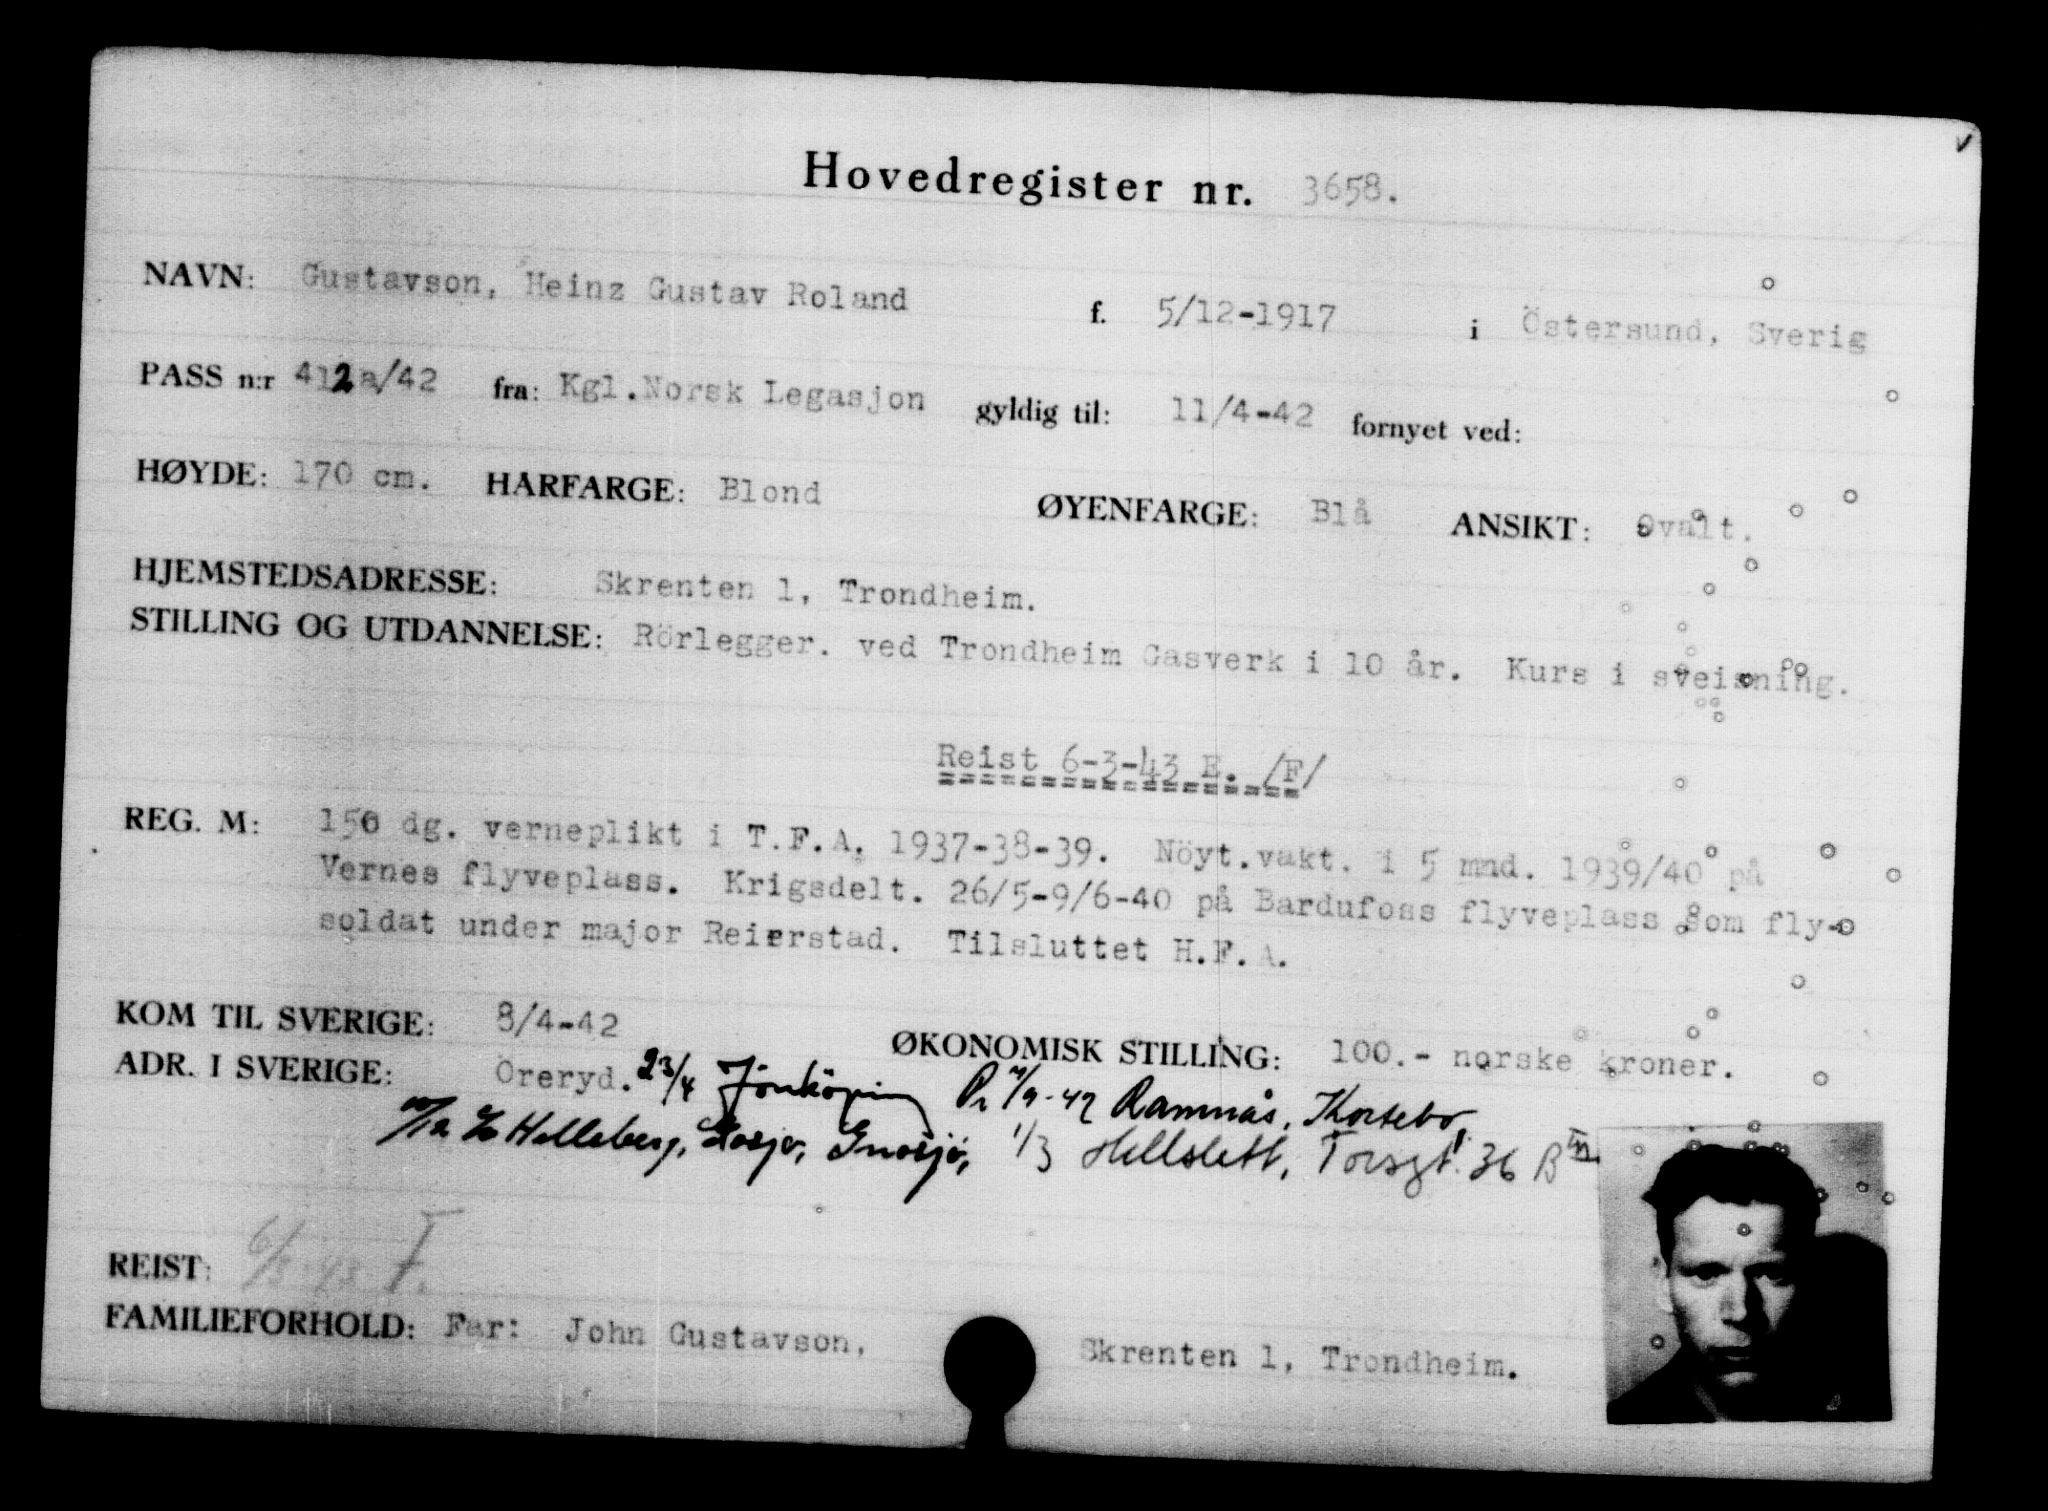 Hovedregister nr. 3658.
NAVN: Gustavson, Heinz Gustav Roland f. 5/12-1917 i Östersund, Sverig
PASS n:r 412a/42 fra: Kgl.Norsk Legasjon gyldig til: 11/4-42 fornyet ved:
HØYDE: 170 cm. HÅRFARGE: Blond ØYENFARGE: Blå ANSIKT: Ovalt.
HJEMSTEDSADRESSE: Skrenten 1, Trondheim.
STILLING OG UTDANNELSE: Rörlegger. ved Trondheim Gasverk i 10 år. Kurs i sveisning.
Reist 6-3-43 E. /F/
REG. M: 150 dg. verneplikt i T.F.A. 1937-38-39. Nöyt.vakt. i 5 mnd. 1939/40 på
Vernes flyveplass. Krigsdelt. 26/5-9/6-40 på Bardufoss flyveplass som fly-
soldat under major Reierstad. Tilsluttet H.F.A.
KOM TIL SVERIGE: 8/4-42 ØKONOMISK STILLING: 100.- norske kroner.
ADR. I SVERIGE: Öreryd. 23/4 Jönköping /9-42 Ramnås, Kortebo,
Helleberg, Gnosjö, 1/3 Torsgt. 36 B
REIST: 6/3 43 F.
FAMILIEFORHOLD: Far: John Gustavson, Skrenten 1, Trondheim.